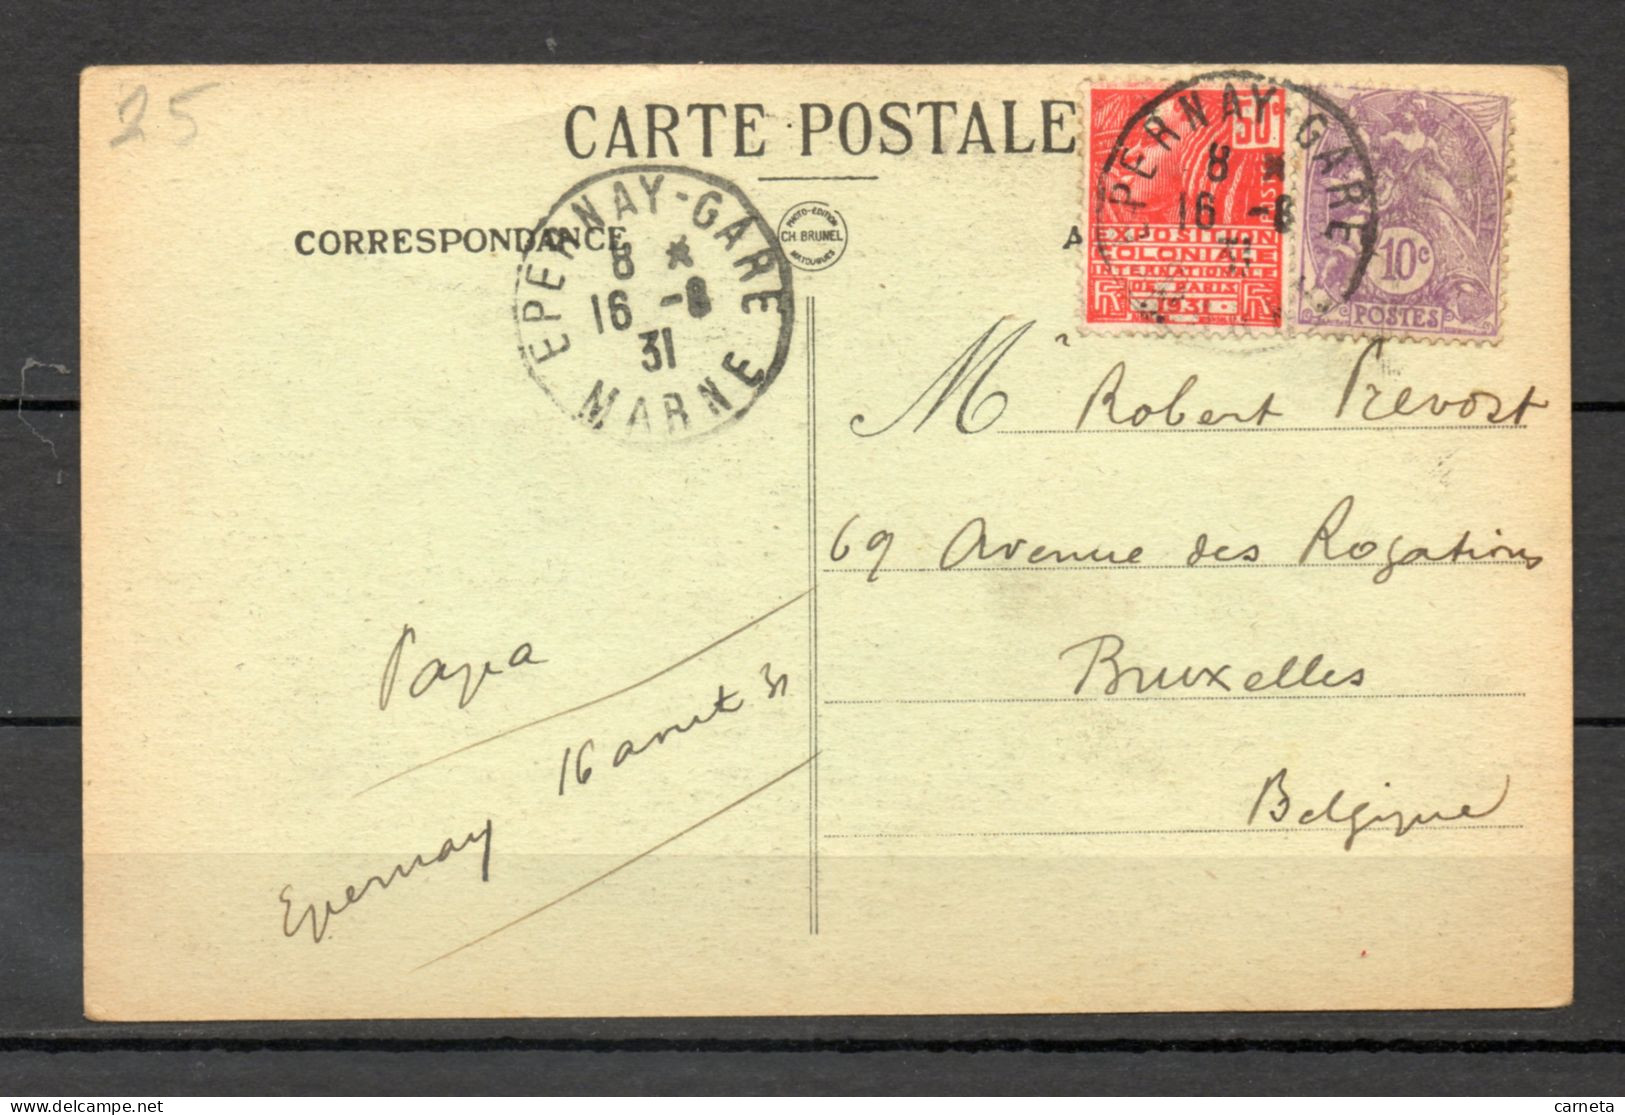 25
CARTE POSTALE
EPERNAY-GARE
8 *
16 -8
31
MARNE
CORRESPONDANCE
PHOTO-ÉDITION
CH. BRUNEL
MATOUGUES
A
50c
POSTES
EXPOSITION
COLONIALE
INTERNATIONALE
DE PARIS
1931
EPERNAY-GARE
8 *
16 -8
31
10c
POSTES
M Robert Prevost
69 Avenue des Rogations
Bruxelles
Belgique
Papa
Epernay 16 aout 31
carneta